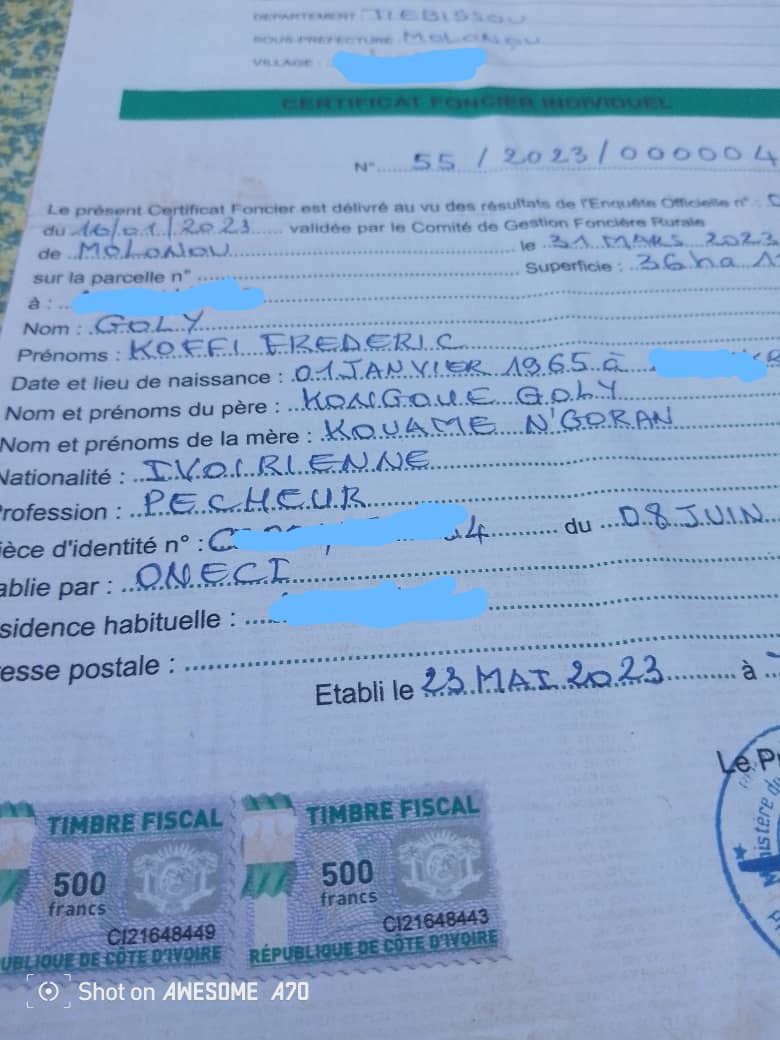 DEPARTEMENT TIEBISSOU
SOUS-PREFECTURE MOLONOU
VILLAGE :
CERTIFICAT FONCIER INDIVIDUEL
N° 55 / 2023 / 000004
Le présent Certificat Foncier est délivré au vu des résultats de l'Enquête Officielle n° :
du 16/01/2023 validée par le Comité de Gestion Foncière Rurale
de MOLONOU le 31 MARS 2023
sur la parcelle n° Superficie : 36 ha
à :
Nom : GOLY
Prénoms : KOFFI FREDERIC
Date et lieu de naissance : 01 JANVIER 1965 à
Nom et prénoms du père : KONGOUE GOLY
Nom et prénoms de la mère : KOUAME N'GORAN
Nationalité : IVOIRIENNE
Profession : PECHEUR
ièce d'identité n° : du 08 JUIN
ablie par : ONECI
sidence habituelle :
esse postale :
Etabli le 23 MAI 2023 à
Le P
TIMBRE FISCAL TIMBRE FISCAL
500 francs 500 francs
CI21648449 CI21648443
UBLIQUE DE CÔTE D'IVOIRE RÉPUBLIQUE DE CÔTE D'IVOIRE
Shot on AWESOME A70